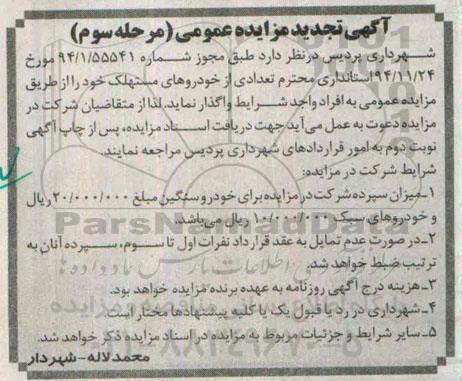 آگهی تجدید مزایده عمومی (مرحله سوم)
شهرداری پردیس درنظر دارد طبق مجوز شماره ۹۴/۱/۵۵۵۴۱ مورخ
۹۴/۱۱/۲۴ استانداری محترم تعدادی از خودروهای مستهلک خود را از طریق
مزایده عمومی به افراد واجد شرایط واگذار نماید. لذا از متقاضیان شرکت در
مزایده دعوت به عمل می‌آید جهت دریافت اسناد مزایده، پس از چاپ آگهی
نوبت دوم به امور قراردادهای شهرداری پردیس مراجعه نمایند.
شرایط شرکت در مزایده:
۱ـ میزان سپرده شرکت در مزایده برای خودرو سنگین مبلغ ۲۰/۰۰۰/۰۰۰ ریال
و خودروهای سبک ۱۰/۰۰۰/۰۰۰ ریال می‌باشد.
۲ـ در صورت عدم تمایل به عقد قرارداد نفرات اول تا سوم، سپرده آنان به
ترتیب ضبط خواهد شد.
۳ـ هزینه درج آگهی روزنامه به عهده برنده مزایده خواهد بود.
۴ـ شهرداری در رد یا قبول یک یا کلیه پیشنهادها مختار است.
۵ـ سایر شرایط و جزئیات مربوط به مزایده در اسناد مزایده ذکر خواهد شد.
محمد لاله - شهردار
ParsNamadData